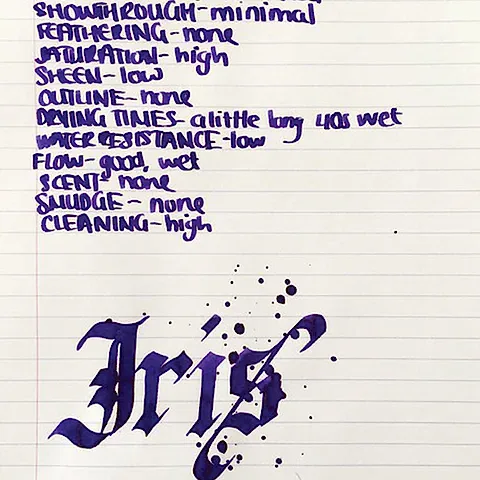 SHOWTHROUGH-minimal
FEATHERING-none
SATURATION-high
SHEEN-low
OUTLINE-none
DRYING TIMES-a little long 40s wet
WATER RESISTANCE-low
FLOW-good, wet
SCENT-none
SMUDGE-none
CLEANING-high
Iris